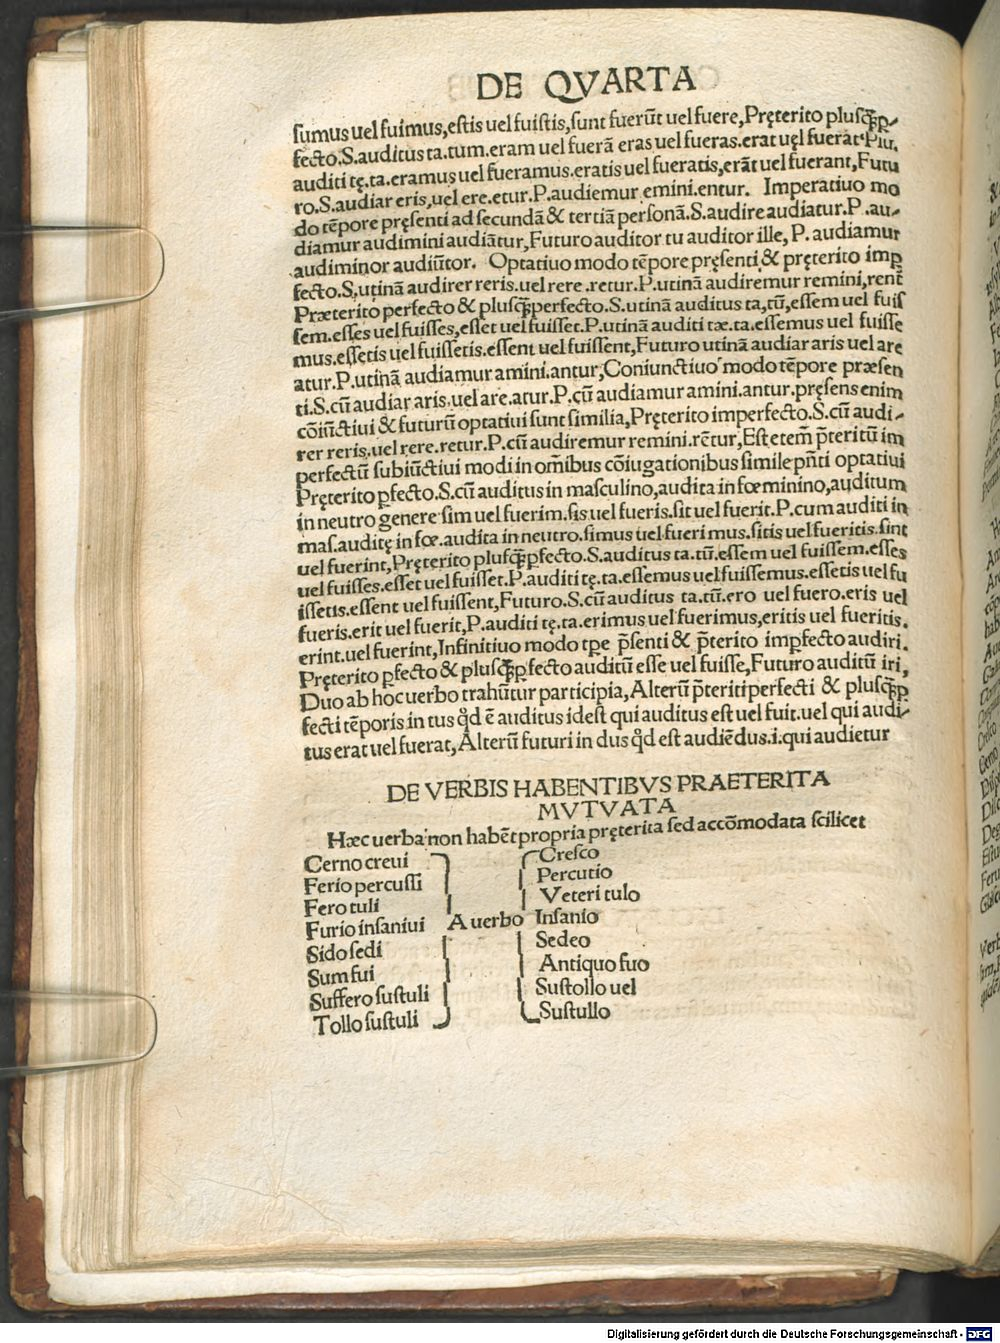 DE QVARTA
sumus uel fuimus,estis uel fuistis,sunt fuerūt uel fuere,Pręterito plusq̄ꝑ-
fecto.S.auditus ta.tum.eram uel fuerā eras uel fueras.erat uel fuerat.Plu.
auditi tę.ta.eramus uel fueramus.eratis uel fueratis,erāt uel fuerant,Futu
ro.S.audiar eris,uel ere.etur.P.audiemur emini.entur. Imperatiuo mo
do tēpore pręsenti ad secundā & tertiā personā.S.audire audiatur.P.au-
diamur audimini audiātur,Futuro auditor tu auditor ille, P. audiamur
audiminor audiūtor. Optatiuo modo tēpore pręsenti & pręterito imꝑ
fecto.S.utinā audirer reris.uel rere.retur.P.utinā audiremur remini,rent̄
Præterito perfecto & plusq̄perfecto.S.utinā auditus ta,tū,essem uel fuis
sem.esses uel fuisses,esset uel fuisset.P.utinā auditi tæ.ta.essemus uel fuisse
mus.essetis uel fuissetis.essent uel fuissent,Futuro utinā audiar aris uel are
atur.P.utinā audiamur amini.antur,Coniunctiuo modo tēpore præsen
ti.S.cū audiar aris.uel are.atur.P.cū audiamur amini.antur.pręsens enim
cōiūctiui & futurū optatiui sunt similia,Pręterito imperfecto.S.cū audi-
rer reris.uel rere.retur.P.cū audiremur remini.rētur,Est etem̄ p̄teritū im
perfectū subiūctiui modi in om̄ibus cōiugationibus simile pn̄ti optatiui
Pręterito ꝑfecto.S.cū auditus in masculino,audita in fœminino,auditum
in neutro genere sim uel fuerim.sis uel fueris.sit uel fuerit.P.cum auditi in
mas.auditę in fœ.audita in neutro.simus uel fueri mus.sitis uel fueritis.sint
uel fuerint,Pręterito plusq̄ꝑfecto.S.auditus ta.tū.essem uel fuissem.esses
uel fuisses.esset uel fuisset.P.auditi tę.ta.essemus uel fuissemus.essetis uel fu
issetis.essent uel fuissent,Futuro.S.cū auditus ta.tū.ero uel fuero.eris uel
fueris.erit uel fuerit,P.auditi tę.ta.erimus uel fuerimus,eritis uel fueritis.
erint.uel fuerint,Infinitiuo modo tꝑe p̄senti & p̄terito imꝑfecto audiri.
Pręterito ꝑfecto & plusq̄ꝑfecto auditū esse uel fuisse,Futuro auditū iri,
Duo ab hoc uerbo trahūtur participia,Alterū p̄teriti perfecti & plusq̄ꝑ
fecti tēporis in tus qd̄ ē auditus idest qui auditus est uel fuit.uel qui audi-
tus erat uel fuerat,Alterū futuri in dus qd̄ est audiēdus.i.qui audietur
DE VERBIS HABENTIBVS PRAETERITA
MVTVATA
Hæc uerba non habēt propria pręterita sed accōmodata scilicet
Cerno creui Cresco
Ferio percussi Percutio
Fero tuli Veteri tulo
Furio insaniui A uerbo Insanio
Sido sedi Sedeo
Sum fui Antiquo fuo
Suffero sustuli Sustollo uel
Tollo sustuli Sustullo
Digitalisierung gefördert durch die Deutsche Forschungsgemeinschaft - DFG